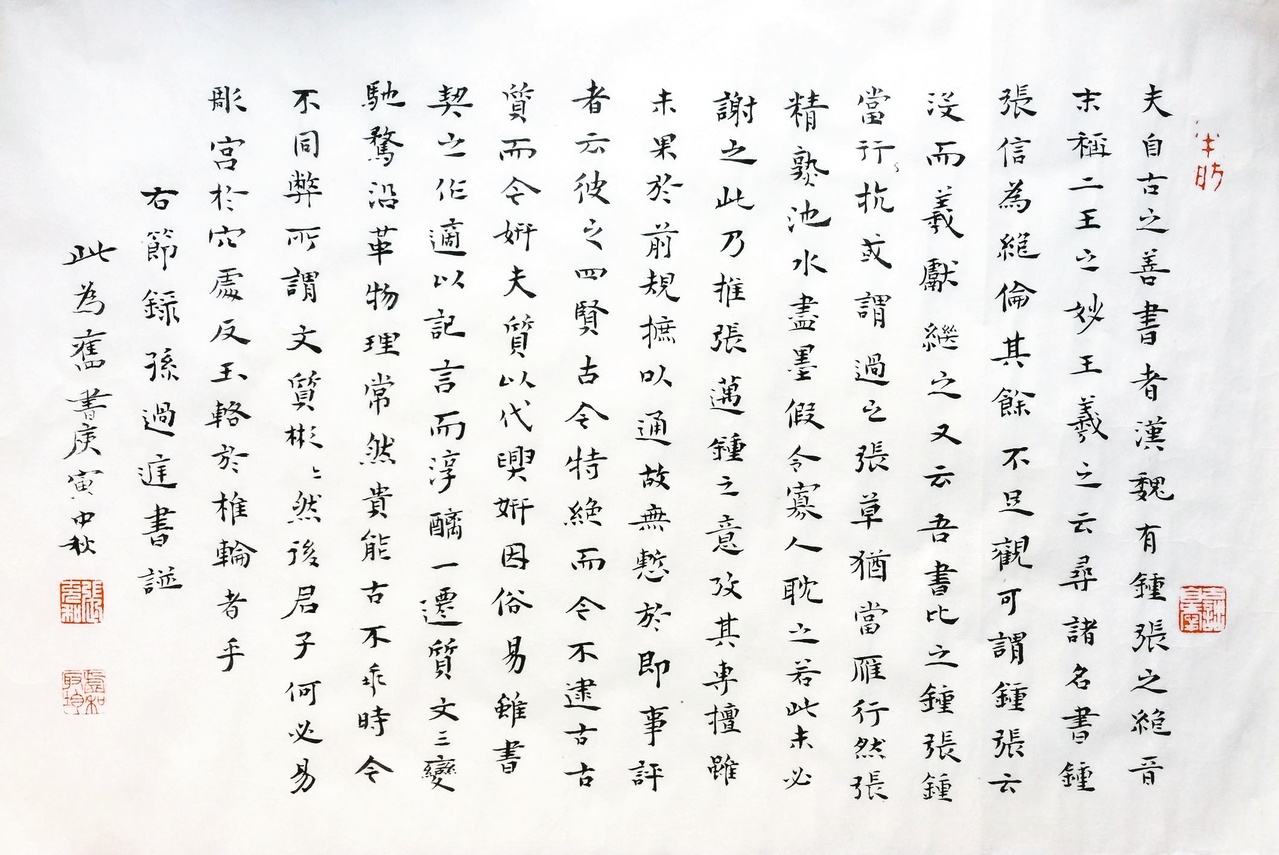 夫自古之善書者漢魏有鍾張之絶晉
末稱二王之妙王羲之云尋諸名書鍾
張信為絶倫其餘不足觀可謂鍾張云
沒而羲獻繼之又云吾書比之鍾張鍾
當行〻抗或謂過之張草猶當雁行然張
精熟池水盡墨假令寡人耽之若此未必
謝之此乃推張邁鍾之意攷其專擅雖
未果於前規摭以通故無慙於即事評
者云彼之四賢古今特絶而今不逮古古
質而今妍夫質以代興妍因俗易雖書
契之作適以記言而淳醨一遷質文三變
馳騖沿革物理常然貴能古不乖時今
不同弊所謂文質彬〻然後君子何必易
彫宮於穴處反玉輅於椎輪者乎
右節録孫過庭書譜
此為舊書庚寅中秋